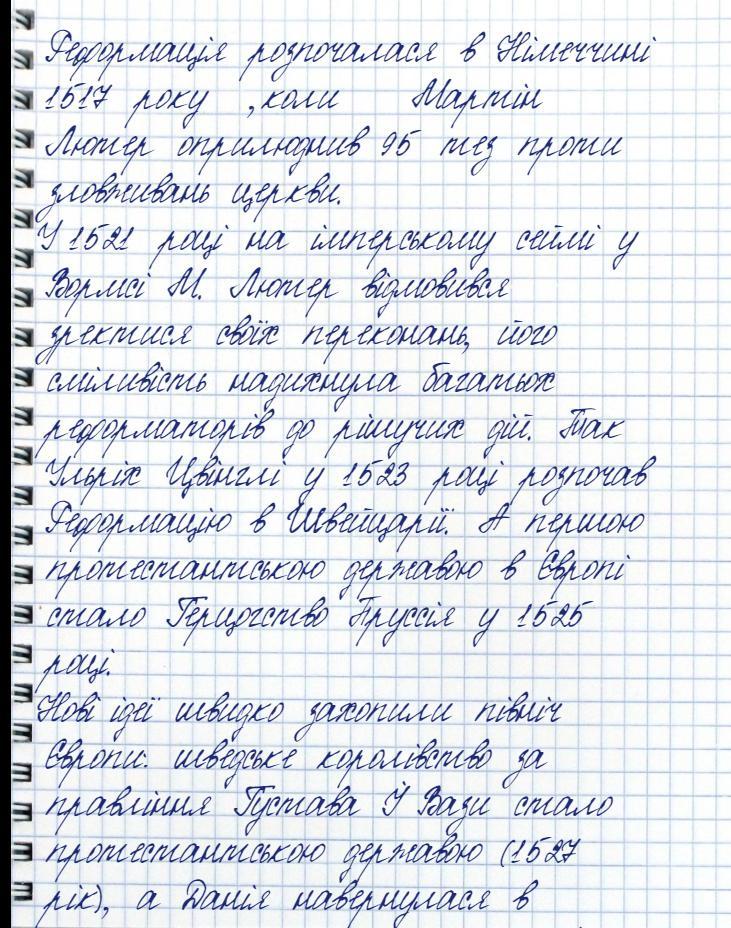 Реформація розпочалася в Німеччині
1517 року , коли Мартін
Лютер оприлюднив 95 тез проти
зловживань церкви.
У 1521 році на імперському сеймі у
Вормсі М. Лютер відмовився
зректися своїх переконань, його
сміливість надихнула багатьох
реформаторів до рішучих дій. Так
Ульріх Цвінглі у 1523 році розпочав
Реформацію в Швейцарії. А першою
протестантською державою в Європі
стало Герцогство Пруссія у 1525
році.
Нові ідеї швидко захопили північ
Європи: шведське королівство за
правління Густава Й Вази стало
протестантською державою (1527
рік), а Данія навернулася в